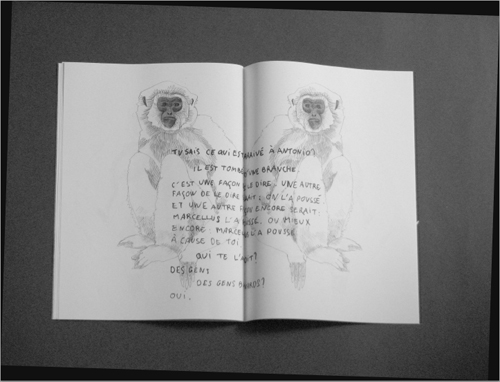 TU SAIS CE QUI EST ARRIVÉ À ANTONIO?
IL EST TOMBÉ D'UNE BRANCHE.
C'EST UNE FAÇON DE LE DIRE. UNE AUTRE
FAÇON DE LE DIRE SERAIT: ON L'A POUSSÉ
ET UNE AUTRE FAÇON ENCORE SERAIT:
MARCELLUS L'A POUSSÉ. OU MIEUX
ENCORE: MARCELLUS L'A POUSSÉ
À CAUSE DE TOI.
QUI TE L'A DIT?
DES GENS
DES GENS?
OUI.